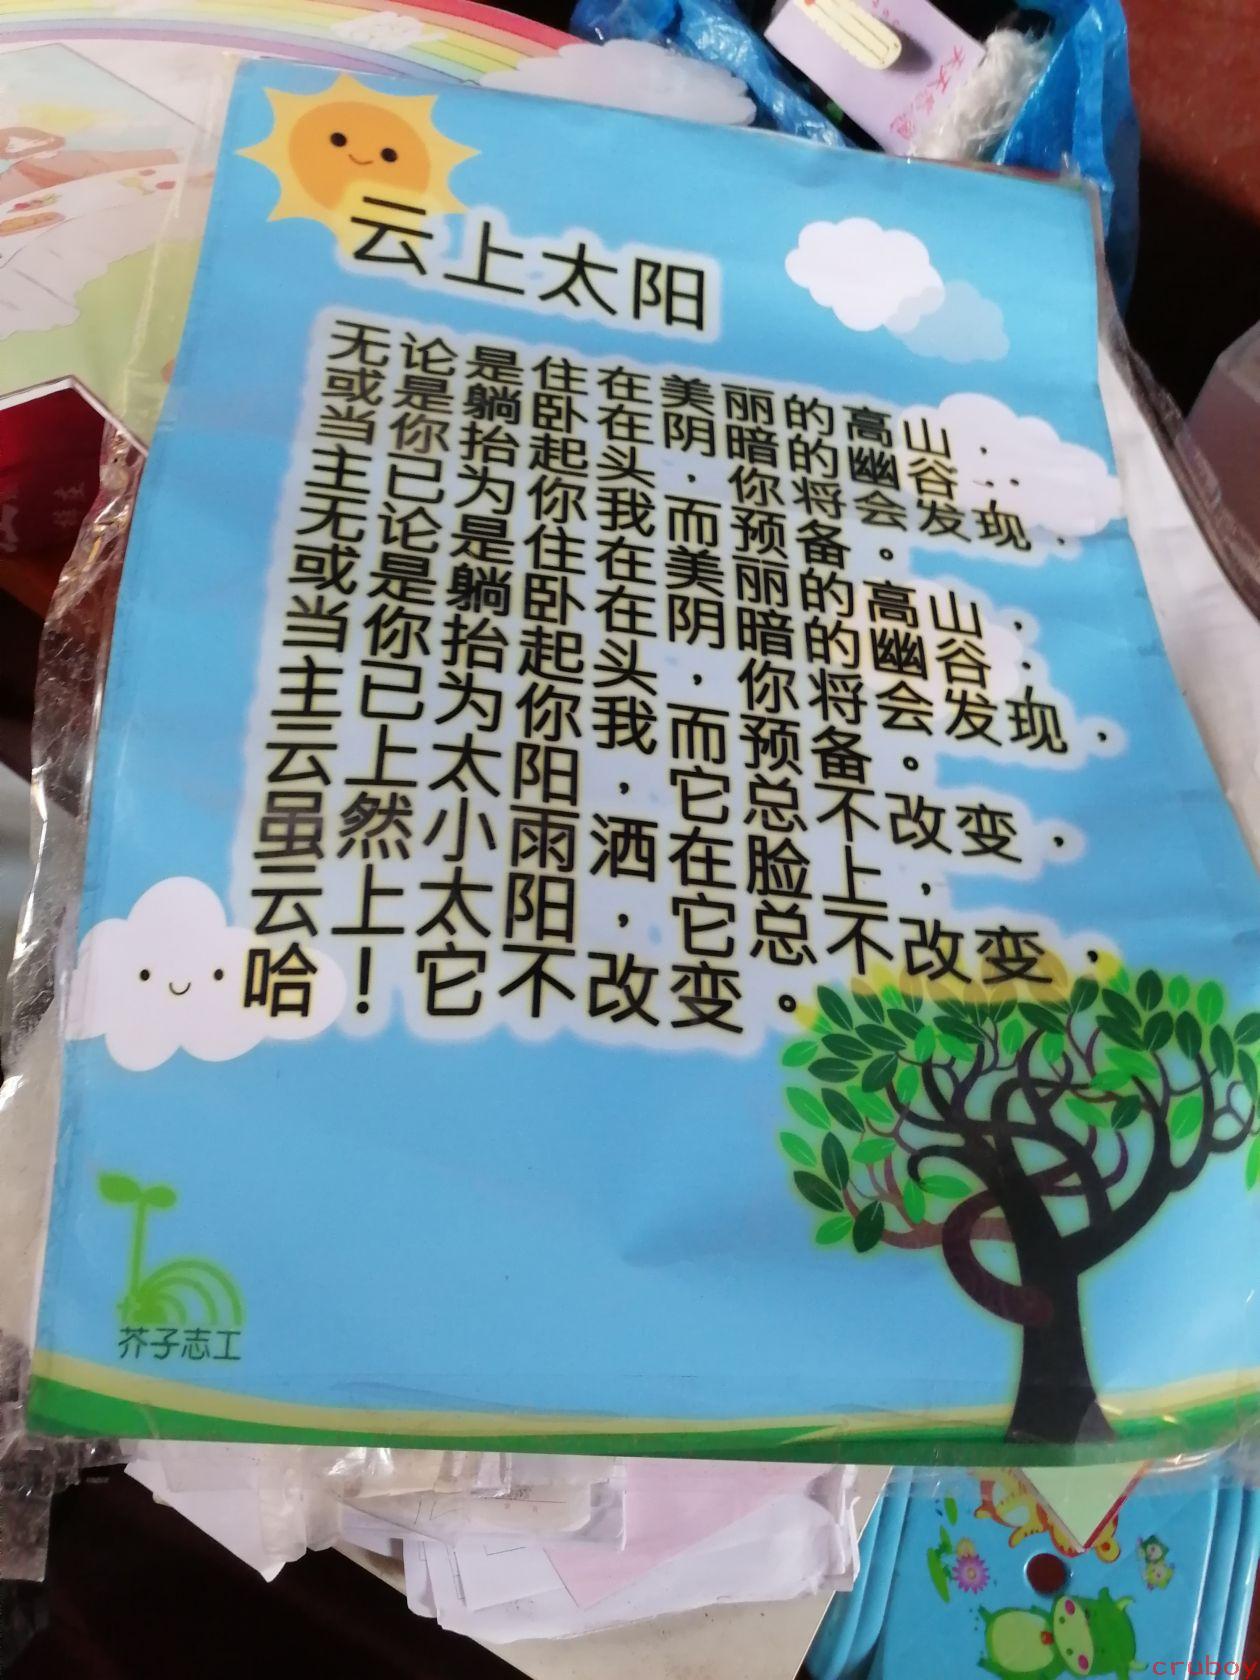 云上太阳
无论是住在美丽的高山，
或是躺卧在阴暗的幽谷，
当你抬起头，你将会发现，
主已为你我而预备。
无论是住在美丽的高山，
或是躺卧在阴暗的幽谷，
当你抬起头，你将会发现，
主已为你我，而预备。
云上太阳，它总不改变，
虽然小雨洒在脸上，
云上太阳，它总不改变，
哈！它不改变。
芥子志工